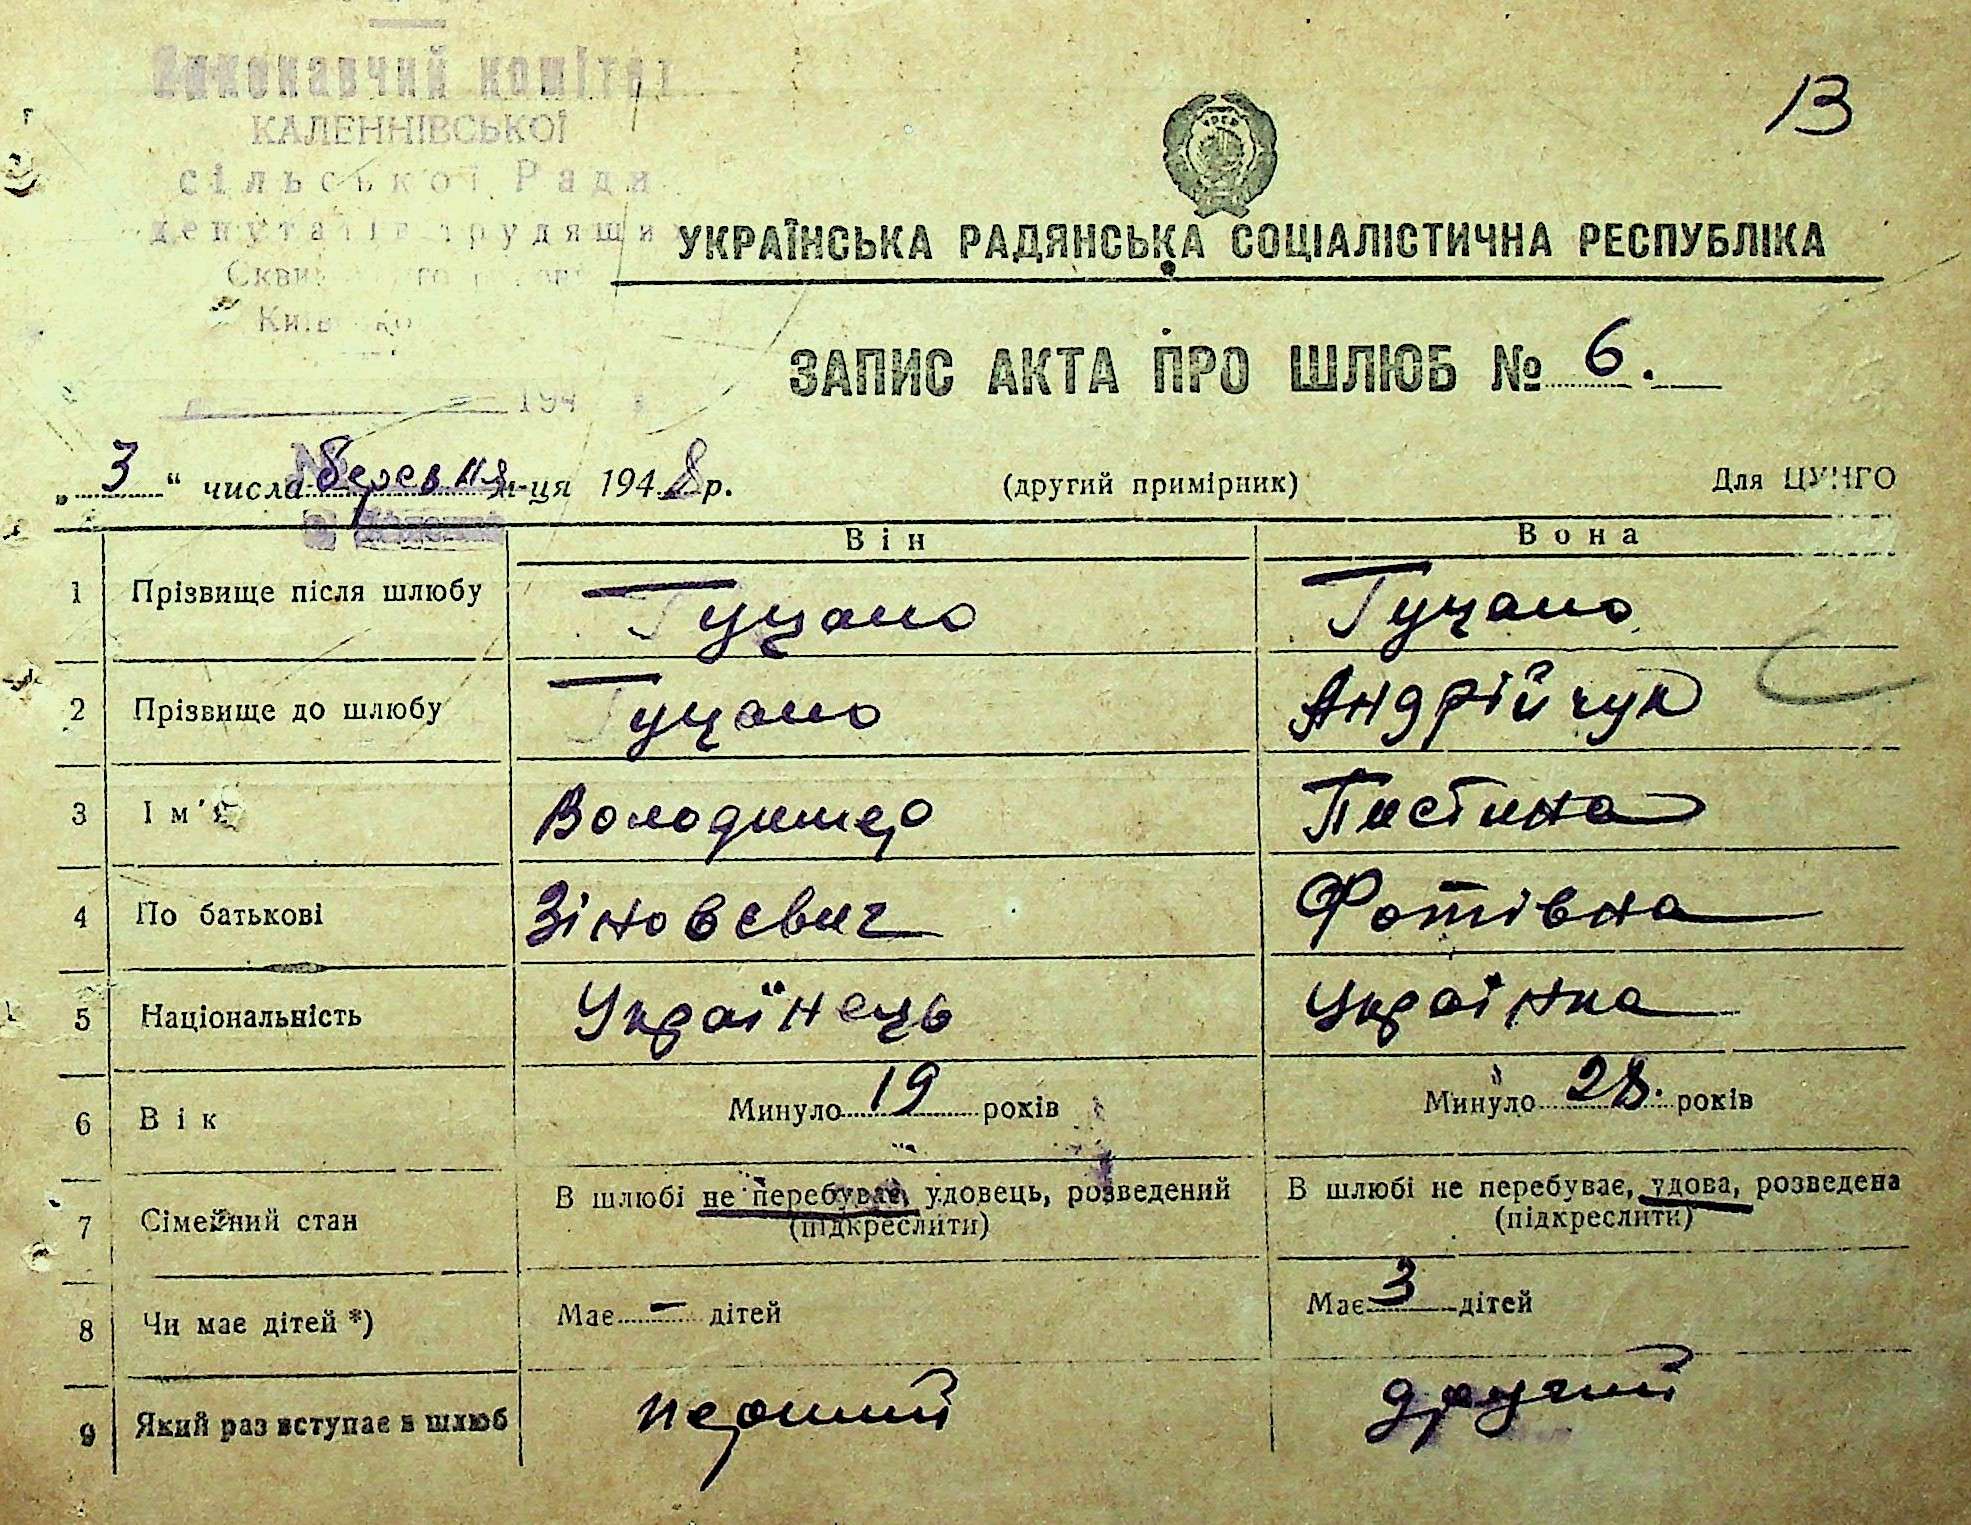 Виконавчий комітет
КАЛЕННІВСЬКОЇ
сільської Ради
депутатів трудящих
13
УКРАЇНСЬКА РАДЯНСЬКА СОЦІАЛІСТИЧНА РЕСПУБЛІКА
ЗАПИС АКТА ПРО ШЛЮБ № 6.
194
„3“ числа березня м-ця 1948 р. (другий примірник) Для ЦУНГО
Він Вона
1 Прізвище після шлюбу Гуцало Гуцало
2 Прізвище до шлюбу Гуцало Андрійчук
3 Ім'я Володимер Пистина
4 По батькові Зіновєвич Фотівна
5 Національність Українець Українка
6 Вік Минуло 19 років Минуло 28. років
7 Сімейний стан В шлюбі не перебуває, удовець, розведений В шлюбі не перебуває, удова, розведена
(підкреслити) (підкреслити)
8 Чи має дітей *) Має – дітей Має 3 дітей
9 Який раз вступає в шлюб перший другий